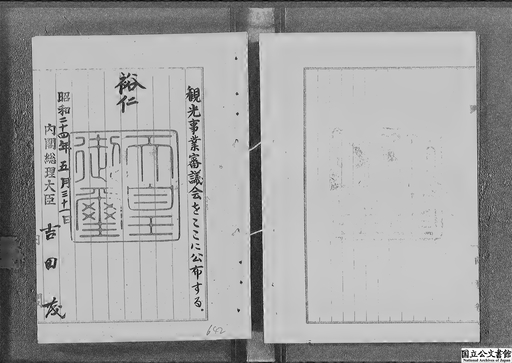 観光事業審議会をここに公布する。
裕仁
天皇御璽
昭和二十四年五月三十一日
内閣総理大臣
吉田茂
642
国立公文書館
National Archives of Japan